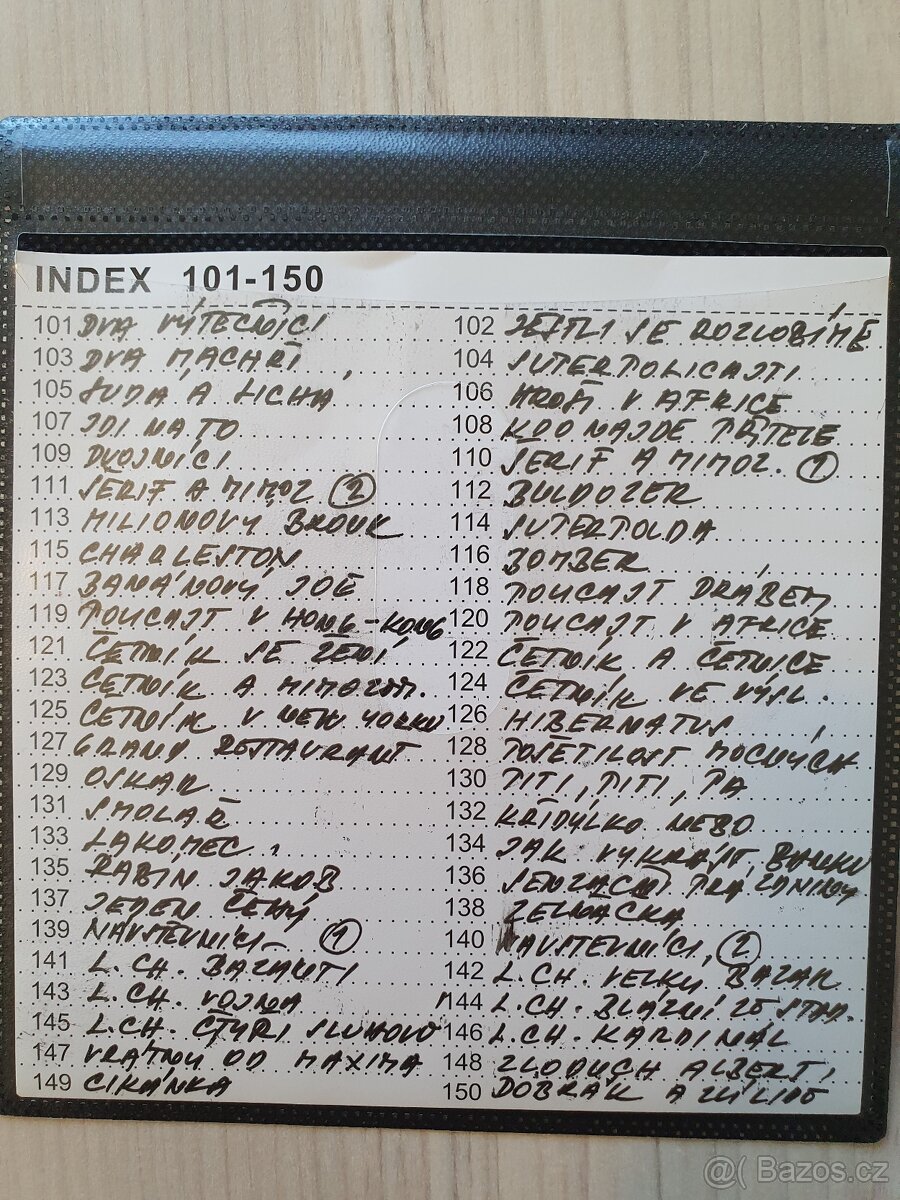 INDEX 101-150
101 DVA VÝTEČNÍCI 102 JESTLI SE ROZLOBÍME
103 DVA MACHŘI 104 SUPERPOLICAJTI
105 SUDÁ A LICHÁ 106 HROŠI V AFRICE
107 JDI NA TO 108 KDO NAJDE PŘÍTELE
109 DVOJNÍCI 110 ŠERIF A MIMOZ. 1
111 ŠERIF A MIMOZ 2 112 BULDOZER
113 MILIONOVÝ BROUK 114 SUPERPOLDA
115 CHARLESTON 116 BOMBER
117 BANÁNOVÝ JOE 118 POLICAJT DRÁBEM
119 POLICAJT V HONG-KONG 120 POLICAJT V AFRICE
121 ČETNÍK SE ŽENÍ 122 ČETNÍK A ČETNICE
123 ČETNÍK A MIMOZEM. 124 ČETNÍK VE VÝSL.
125 ČETNÍK V NEW YORKU 126 HIBERNATUS
127 GRAND RESTAURANT 128 POŠETILOST MOCNÝCH
129 OSKAR 130 PITI, PITI, PA
131 SMOLAŘ 132 KŘIDÝLKO NEBO
133 LAKOMEC 134 JAK VYKRÁST BANKU
135 RABÍN JAKOB 136 SENZAČNÍ PRÁZDNINY
137 JEDEN ČESTNÝ 138 ZELŇAČKA
139 NÁVŠTĚVNÍCI 1 140 NÁVŠTĚVNÍCI 2
141 L.CH. BAŽANTI 142 L.CH. VELKÝ BAZAR
143 L.CH. VOJNA 144 L.CH. BLÁZNI ZE STAD.
145 L.CH. ČTYŘI SLUHOVÉ 146 L.CH. KARDINÁL
147 VRÁTNÝ OD MAXIMA 148 ZLODUCH ALBERTI
149 CIKÁNKA 150 DOBRÁK A ZÚLIDE
@( Bazos.cz